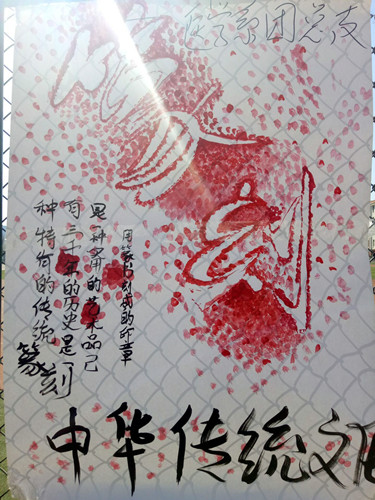 医学系团总支
篆刻
用篆书刻成的印章
是 的艺术品已
有三千年的历史是一
种特有的传统
篆刻
中华传统文